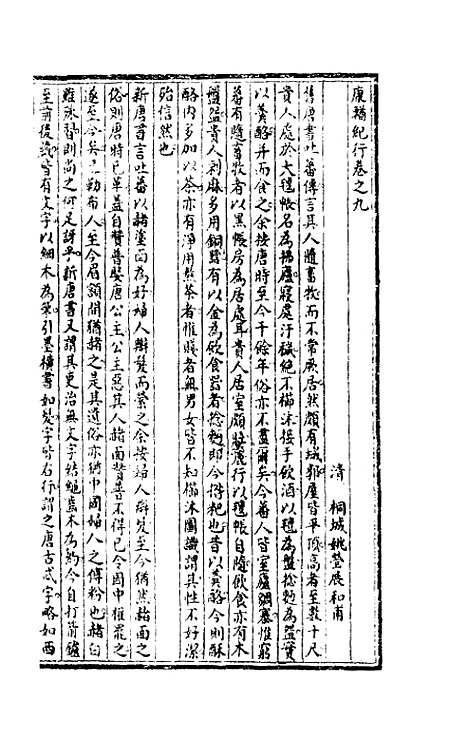 康輶紀行卷之九
清 桐城姚瑩展和甫
舊唐書吐蕃傳言其人隨畜牧而不常厥居然頗有城郭屋皆平頂高者至數十尺
貴人處於大氊帳名為拂廬寢處汙穢絕不櫛沐接手飲酒以氊為盤捻麨為盌實
以羹酪并而食之余按唐時至今千餘年俗亦不盡爾矣今蕃人皆室廬綢裹惟窮
蕃有隨畜牧者以黑帳房為居處耳貴人居室頗壯麗行以氊帳自隨飲食亦有木
盤盌貴人剥麻多用銅器有以金為飲食器者捻麨即今糌粑也昔以羹酪今則酥
酪內多加以茶亦有淨用熬茶者惟賤者無男女皆不知櫛沐圖識謂其性不好潔
殆信然也
新唐書言吐蕃以赭塗面為好婦人辮髮而縈之余按婦人辮髮至今猶然赭面之
俗則唐時已革蓋自贊普娶唐公主公主惡其人赭面贊普不得已令國中權罷之
遂至今矣巴勒布人至今眉額間猶赭之是其遺俗亦猶中國婦人之傅粉也赭白
雖殊習則尚之何足訝乎新唐書又謂其吏治無文字結繩齒木為約今自打箭鑪
至前後藏皆有文字以細木為筆引墨橫書如髮字皆右行謂之唐古忒字略如西